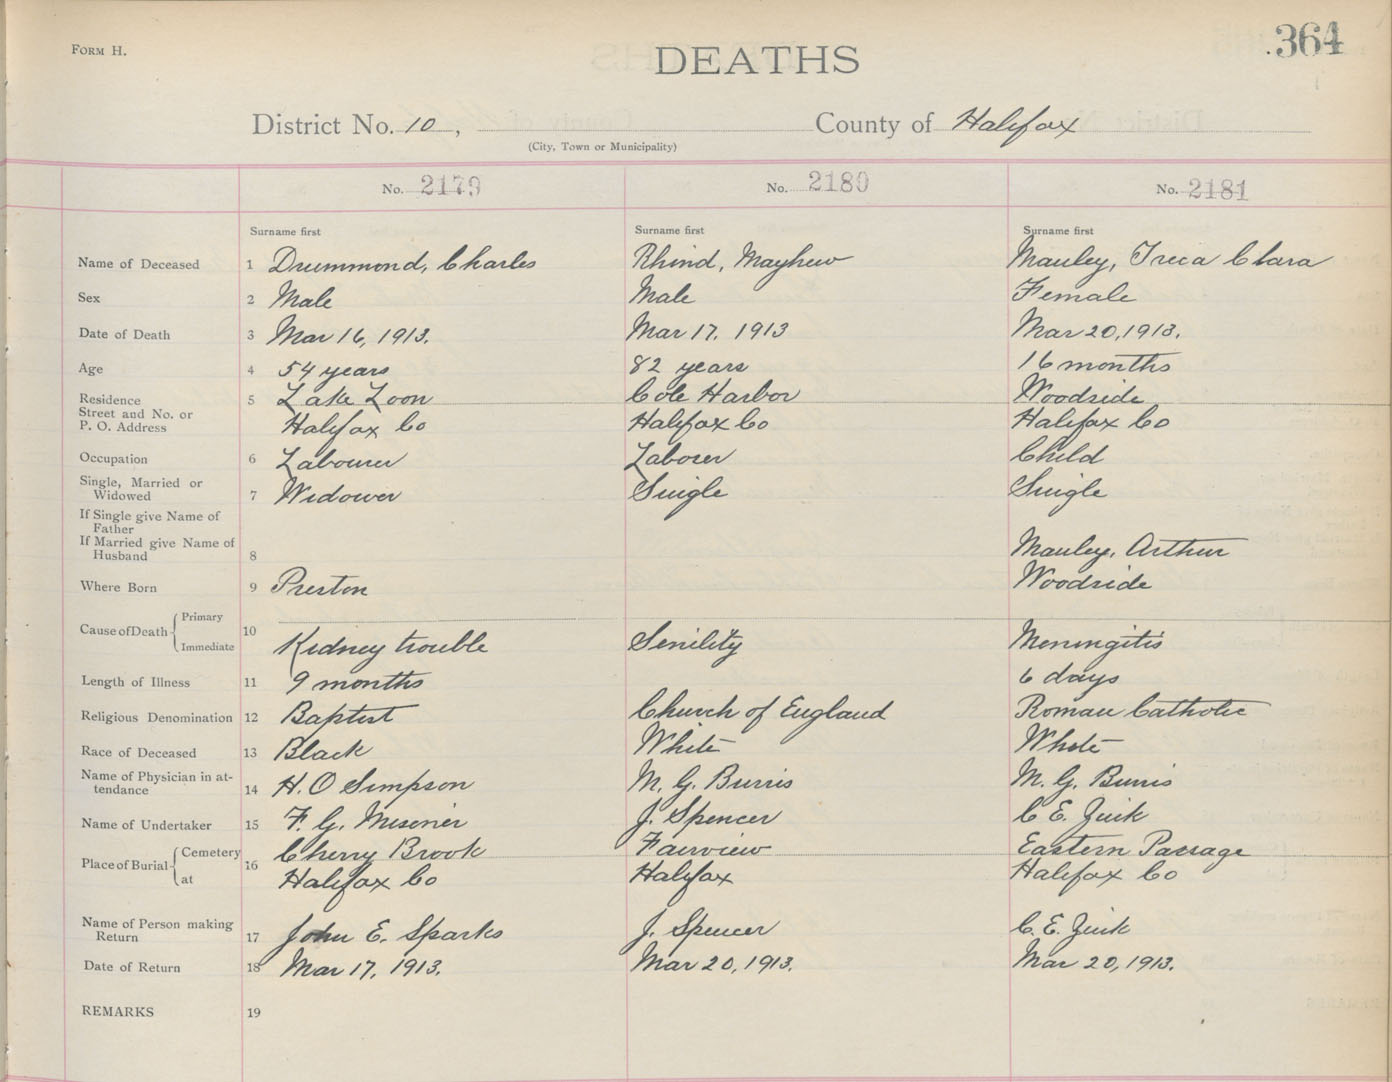 FORM H.
364
DEATHS
District No. 10, County of Halifax
(City, Town or Municipality)
No. 2179 No. 2180 No. 2181
Surname first Surname first Surname first
Name of Deceased 1 Drummond, Charles Rhind, Mayhew Mauley, Treca Clara
Sex 2 Male Male Female
Date of Death 3 Mar 16, 1913. Mar 17. 1913 Mar 20, 1913.
Age 4 54 years 82 years 16 months
Residence 5 Lake Loon Cole Harbor Woodside
Street and No. or
P. O. Address Halifax Co Halifax Co Halifax Co
Occupation 6 Labourer Laborer Child
Single, Married or
Widowed 7 Widower Single Single
If Single give Name of
Father
If Married give Name of
Husband 8 Mauley, Arthur
Where Born 9 Preston Woodside
Cause of Death Primary 10
Immediate Kidney trouble Senility Meningitis
Length of Illness 11 9 months 6 days
Religious Denomination 12 Baptist Church of England Roman Catholic
Race of Deceased 13 Black White White
Name of Physician in at-
tendance 14 H. O Simpson M. G. Burris M. G. Burris
Name of Undertaker 15 F. G. Misener J. Spencer C E. Zink
Place of Burial Cemetery 16 Cherry Brook Fairview Eastern Passage
at Halifax Co Halifax Halifax Co
Name of Person making
Return 17 John E. Sparks J. Spencer C. E. Zink
Date of Return 18 Mar 17, 1913. Mar 20, 1913. Mar 20, 1913.
REMARKS 19